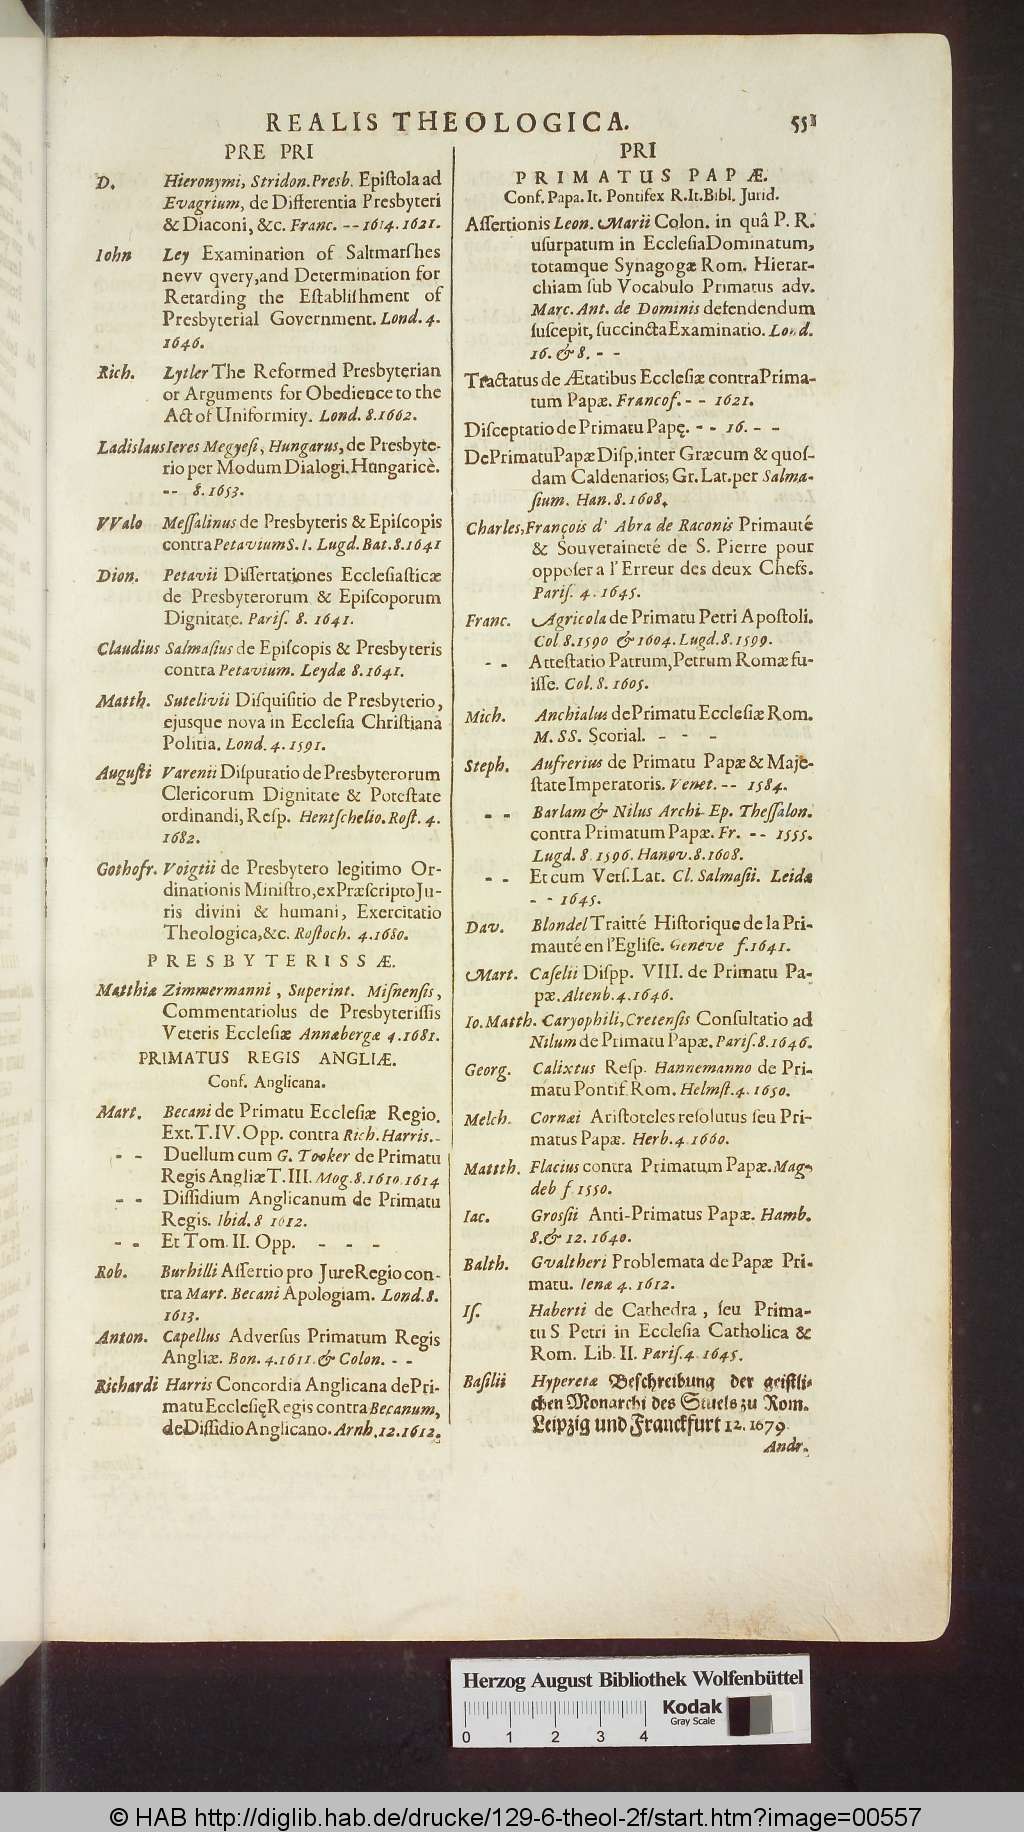 REALIS THEOLOGICA.
551
PRE PRI
D. Hieronymi, Stridon. Presb. Epiſtola ad
Evagrium, de Differentia Presbyteri
& Diaconi, &c. Franc. -- 1614. 1621.
Iohn Ley Examination of Saltmarſhes
nevv qvery, and Determination for
Retarding the Eſtabliſhment of
Presbyterial Government. Lond. 4.
1646.
Rich. Lytler The Reformed Presbyterian
or Arguments for Obedience to the
Act of Uniformity. Lond. 8. 1662.
Ladislaus Ieres Megyeſi, Hungarus, de Presbyte-
rio per Modum Dialogi. Hungaricè.
-- 8. 1653.
VValo Meſſalinus de Presbyteris & Epiſcopis
contra Petavium S. I. Lugd. Bat. 8. 1641
Dion. Petavii Diſſertationes Eccleſiaſticæ
de Presbyterorum & Epiſcoporum
Dignitate. Pariſ. 8. 1641.
Claudius Salmaſius de Epiſcopis & Presbyteris
contra Petavium. Leydæ 8. 1641.
Matth. Sutelivii Diſquiſitio de Presbyterio,
ejusque nova in Eccleſia Chriſtiana
Politia. Lond. 4. 1591.
Auguſti Varenii Diſputatio de Presbyterorum
Clericorum Dignitate & Poteſtate
ordinandi, Reſp. Hentſchelio. Roſt. 4.
1682.
Gothofr. Voigtii de Presbytero legitimo Or-
dinationis Miniſtro, ex Præſcripto Ju-
ris divini & humani, Exercitatio
Theologica, &c. Roſtoch. 4. 1680.
PRESBYTERISSÆ.
Matthiæ Zimmermanni, Superint. Miſnenſis,
Commentariolus de Presbyteriſſis
Veteris Eccleſiæ Annæbergæ 4. 1681.
PRIMATUS REGIS ANGLIÆ.
Conf. Anglicana.
Mart. Becani de Primatu Eccleſiæ Regio.
Ext. T. IV. Opp. contra Rich. Harris. -
- - Duellum cum G. Tooker de Primatu
Regis Angliæ T. III. Mog. 8. 1610. 1614
- - Diſſidium Anglicanum de Primatu
Regis. Ibid. 8 1612.
- - Et Tom. II. Opp. - - -
Rob. Burhilli Aſſertio pro Jure Regio con-
tra Mart. Becani Apologiam. Lond. 8.
1613.
Anton. Capellus Adverſus Primatum Regis
Angliæ. Bon. 4. 1611. & Colon. - -
Richardi Harris Concordia Anglicana de Pri-
matu Eccleſię Regis contra Becanum,
de Diſſidio Anglicano. Arnh. 12. 1612.
PRI
PRIMATUS PAPÆ.
Conf. Papa. It. Pontifex R. It. Bibl. Jurid.
Aſſertionis Leon. Marii Colon. in quâ P. R.
uſurpatum in Eccleſia Dominatum,
totamque Synagogæ Rom. Hierar-
chiam ſub Vocabulo Primatus adv.
Marc. Ant. de Dominis defendendum
ſuſcepit, ſuccincta Examinatio. Lond.
16. & 8. - -
Tractatus de Ætatibus Eccleſiæ contra Prima-
tum Papæ. Francof. - - 1621.
Diſceptatio de Primatu Papę. - - 16. - -
De Primatu Papæ Diſp. inter Græcum & quoſ-
dam Caldenarios; Gr. Lat. per Salma-
ſium. Han. 8. 1608.
Charles, François d' Abra de Raconis Primauté
& Souveraineté de S. Pierre pour
oppoſer a l'Erreur des deux Chefs.
Pariſ. 4. 1645.
Franc. Agricola de Primatu Petri Apoſtoli.
Col 8. 1590 & 1604. Lugd. 8. 1599.
- - Atteſtatio Patrum, Petrum Romæ fu-
iſſe. Col. 8. 1605.
Mich. Anchialus de Primatu Eccleſiæ Rom.
M. SS. Scorial. - - -
Steph. Aufrerius de Primatu Papæ & Maje-
ſtate Imperatoris. Venet. -- 1584.
- - Barlam & Nilus Archi-Ep. Theſſalon.
contra Primatum Papæ. Fr. -- 1555.
Lugd. 8. 1596. Hanov. 8. 1608.
- - Et cum Verſ. Lat. Cl. Salmaſii. Leidæ
- - 1645.
Dav. Blondel Traitté Hiſtorique de la Pri-
mauté en l'Egliſe. Geneve f. 1641.
Mart. Caſelii Diſpp. VIII. de Primatu Pa-
pæ. Altenb. 4. 1646.
Io. Matth. Caryophili, Cretenſis Conſultatio ad
Nilum de Primatu Papæ. Pariſ. 8. 1646.
Georg. Calixtus Reſp. Hannemanno de Pri-
matu Pontif. Rom. Helmſt. 4. 1650.
Melch. Cornæi Ariſtoteles reſolutus ſeu Pri-
matus Papæ. Herb. 4. 1660.
Mattth. Flacius contra Primatum Papæ. Mag-
deb f. 1550.
Iac. Groſſii Anti-Primatus Papæ. Hamb.
8. & 12. 1640.
Balth. Gvaltheri Problemata de Papæ Pri-
matu. Ienæ 4. 1612.
Iſ. Haberti de Cathedra, ſeu Prima-
tu S Petri in Eccleſia Catholica &
Rom. Lib. II. Pariſ. 4. 1645.
Baſilii Hyperetæ Beſchreibung der geiſtli-
chen Monarchi des Stuels zu Rom.
Leipzig und Franckfurt 12. 1679.
Andr.
Herzog August Bibliothek Wolfenbüttel
0 1 2 3 4
Kodak
Gray Scale
© HAB http://diglib.hab.de/drucke/129-6-theol-2f/start.htm?image=00557